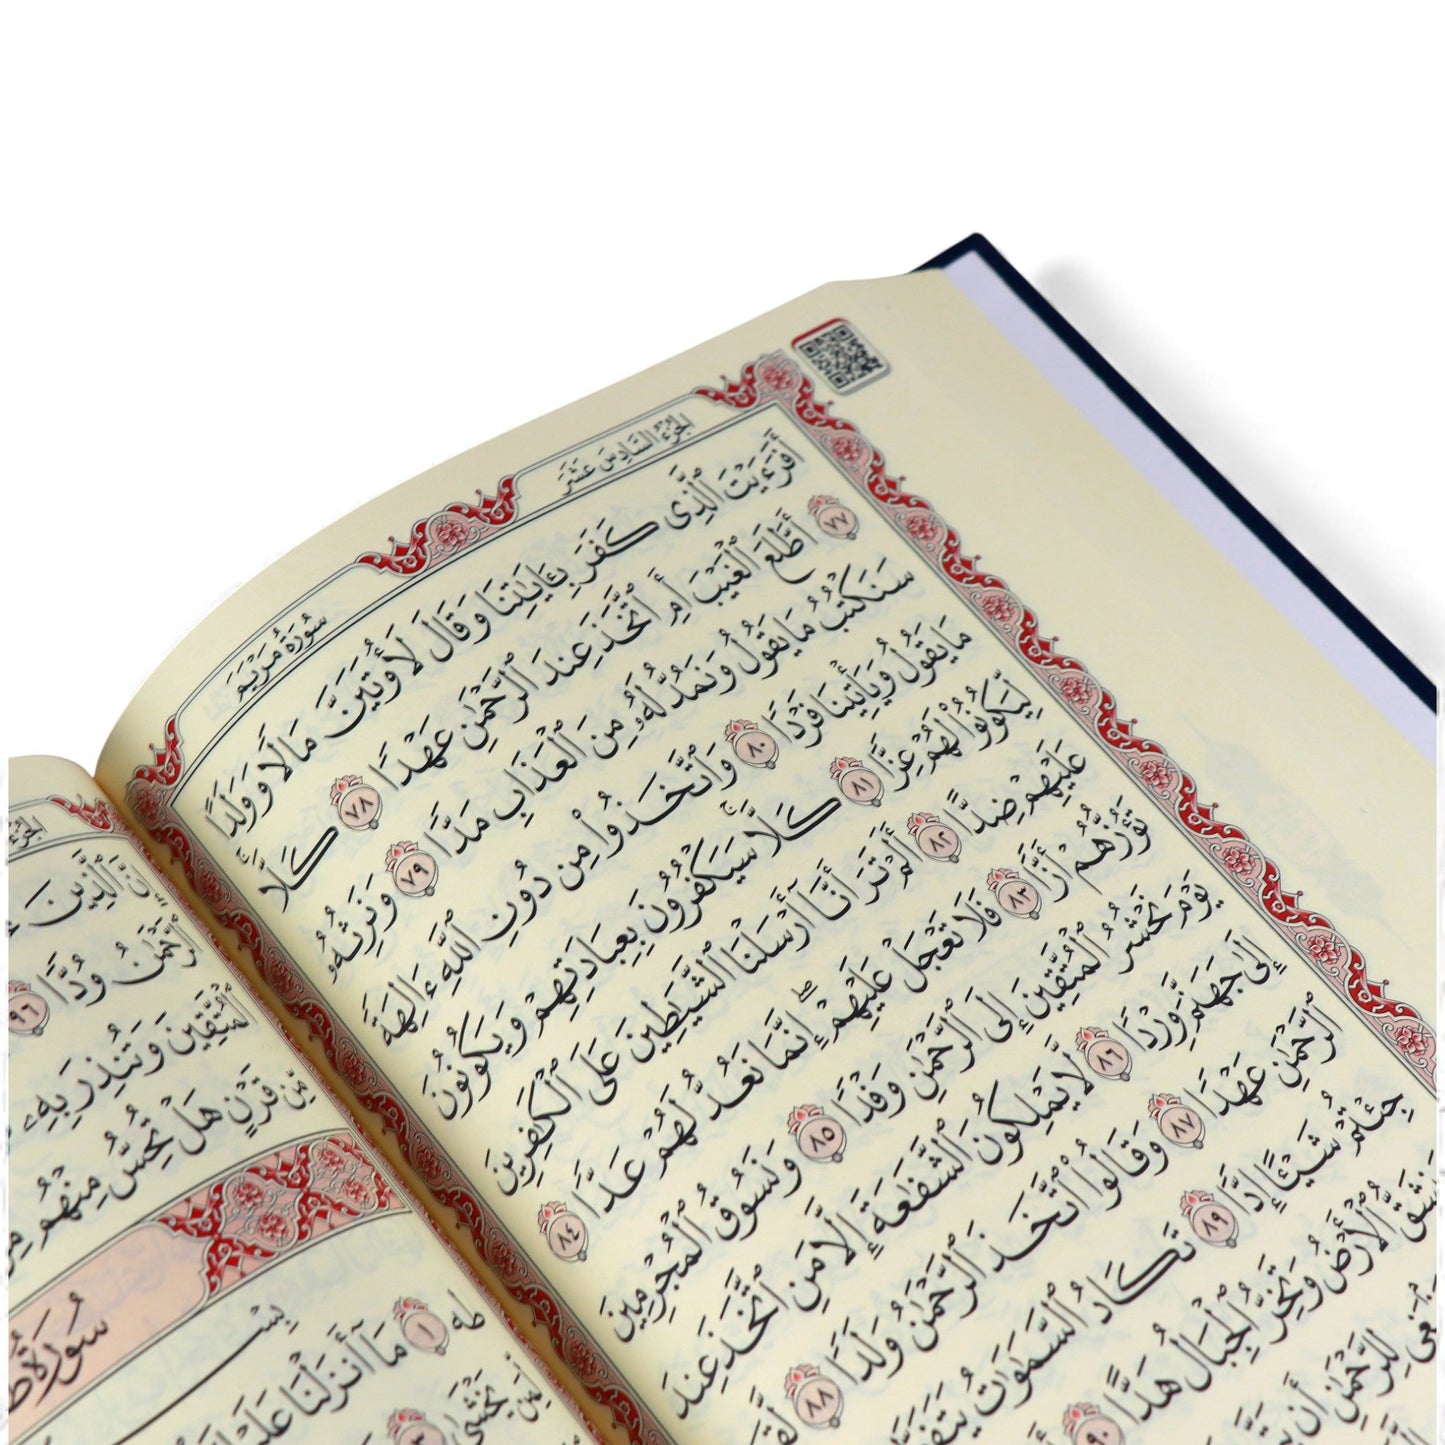 الجزء السادس عشر
سورة مريم
أَفَرَءَيْتَ ٱلَّذِى كَفَرَ بِـَٔايَٰتِنَا وَقَالَ لَأُوتَيَنَّ مَالًا وَوَلَدًا
٧٧ أَطَّلَعَ ٱلْغَيْبَ أَمِ ٱتَّخَذَ عِندَ ٱلرَّحْمَٰنِ عَهْدًا ٧٨ كَلَّا ۚ
سَنَكْتُبُ مَا يَقُولُ وَنَمُدُّ لَهُۥ مِنَ ٱلْعَذَابِ مَدًّا ٧٩ وَنَرِثُهُۥ
مَا يَقُولُ وَيَأْتِينَا فَرْدًا ٨٠ وَٱتَّخَذُوا۟ مِن دُونِ ٱللَّهِ ءَالِهَةً
لِّيَكُونُوا۟ لَهُمْ عِزًّا ٨١ كَلَّا ۚ سَيَكْفُرُونَ بِعِبَادَتِهِمْ وَيَكُونُونَ
عَلَيْهِمْ ضِدًّا ٨٢ أَلَمْ تَرَ أَنَّآ أَرْسَلْنَا ٱلشَّيَٰطِينَ عَلَى ٱلْكَٰفِرِينَ
تَؤُزُّهُمْ أَزًّا ٨٣ فَلَا تَعْجَلْ عَلَيْهِمْ ۖ إِنَّمَا نَعُدُّ لَهُمْ عَدًّا ٨٤
يَوْمَ نَحْشُرُ ٱلْمُتَّقِينَ إِلَى ٱلرَّحْمَٰنِ وَفْدًا ٨٥ وَنَسُوقُ ٱلْمُجْرِمِينَ
إِلَىٰ جَهَنَّمَ وِرْدًا ٨٦ لَّا يَمْلِكُونَ ٱلشَّفَٰعَةَ إِلَّا مَنِ ٱتَّخَذَ عِندَ
ٱلرَّحْمَٰنِ عَهْدًا ٨٧ وَقَالُوا۟ ٱتَّخَذَ ٱلرَّحْمَٰنُ وَلَدًا ٨٨
جِئْتُمْ شَيْـًٔا إِدًّا ٨٩ تَكَادُ ٱلسَّمَٰوَٰتُ
ٱلْأَرْضُ وَتَخِرُّ ٱلْجِبَالُ هَدًّا ٩٠
لِلرَّحْمَٰنِ أَن
ٱلَّذِينَ
ٱلرَّحْمَٰنُ وُدًّا ٩٦
ٱلْمُتَّقِينَ وَتُنذِرَ بِهِۦ
مِّن قَرْنٍ هَلْ تُحِسُّ مِنْهُم
سورة
طه ١ مَآ أَنزَلْنَا
يَخْشَىٰ